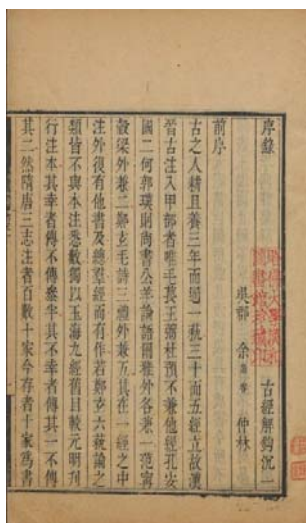 序錄 古經解鉤沉一
吳郡 余蕭客 仲林
前序
古之人耕且養三年而通一蓺三十而五經立故漢
晉古注入甲部者唯毛萇王弼杜預不兼他經孔安
國二何郭璞則尚書公羊論語爾雅外各兼一范甯
穀梁外兼二鄭玄毛詩三禮外兼五其在一經之中
注外復有他書及總羣經而有作若鄭玄六蓺論之
類皆不與本注悉數獨以玉海九經舊目較元明刊
行注本其幸者傳不傳參半其不幸者傳其一不傳
其二然隋唐三志注者百數十家今存者十家爲書